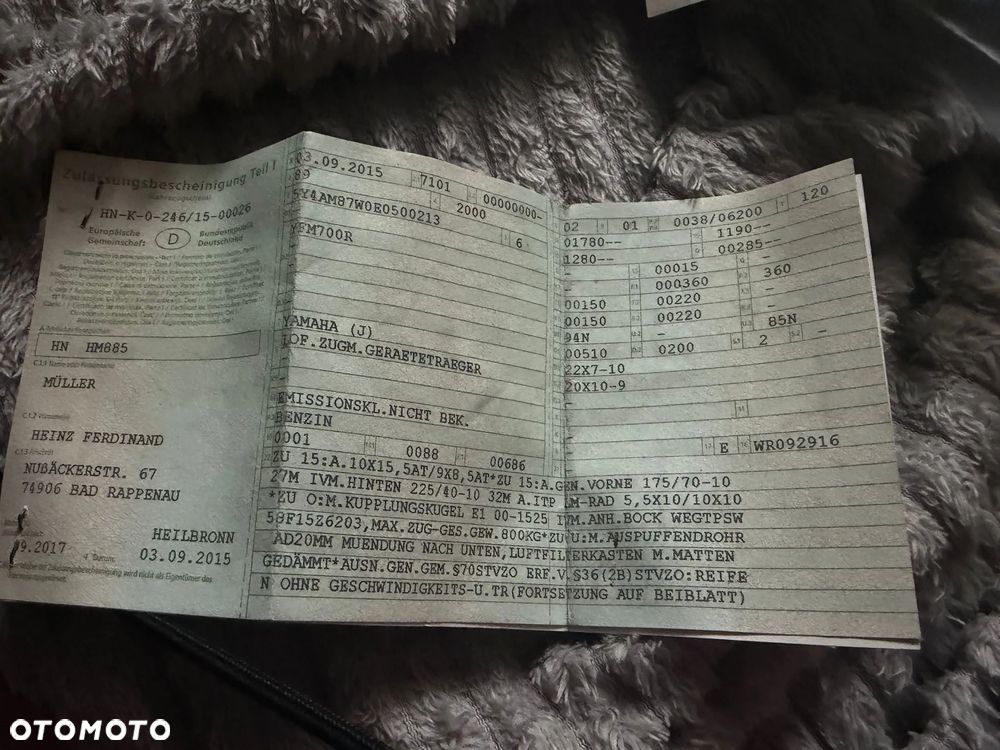 Zulassungsbescheinigung Teil I
HN-K-0-246/15-00026
Europäische Gemeinschaft
D
Bundesrepublik Deutschland
HN HM885
MÜLLER
HEINZ FERDINAND
NUßÄCKERSTR. 67
74906 BAD RAPPENAU
HEILBRONN
09.2017
03.09.2015
03.09.2015 7101 00000000-
89 2000
5Y4AM87W0E0500213 6
YFM700R
YAMAHA (J)
LOF.ZUGM.GERAETETRAEGER
EMISSIONSKL.NICHT BEK.
BENZIN
0001 0088 00686
02 01 0038/06200 120
01780-- 1190--
1280-- 00285--
- 00015 -
- 000360 360
00150 00220 -
00150 00220
94N - 85N
00510 0200 2 -
22X7-10
20X10-9
E WR092916
ZU 15:A.10X15,5AT/9X8,5AT*ZU 15:A.GEN.VORNE 175/70-10
27M IVM.HINTEN 225/40-10 32M A.ITP LM-RAD 5,5X10/10X10
*ZU O:M.KUPPLUNGSKUGEL E1 00-1525 IVM.ANH.BOCK WEGTPSW
58F15Z6203,MAX.ZUG-GES.GEW.800KG*ZU U:M.AUSPUFFENDROHR
AD20MM MUENDUNG NACH UNTEN,LUFTFILTERKASTEN M.MATTEN
GEDÄMMT*AUSN.GEN.GEM.§70STVZO ERF.V.§36(2B)STVZO:REIFE
N OHNE GESCHWINDIGKEITS-U.TR(FORTSETZUNG AUF BEIBLATT)
OTOMOTO